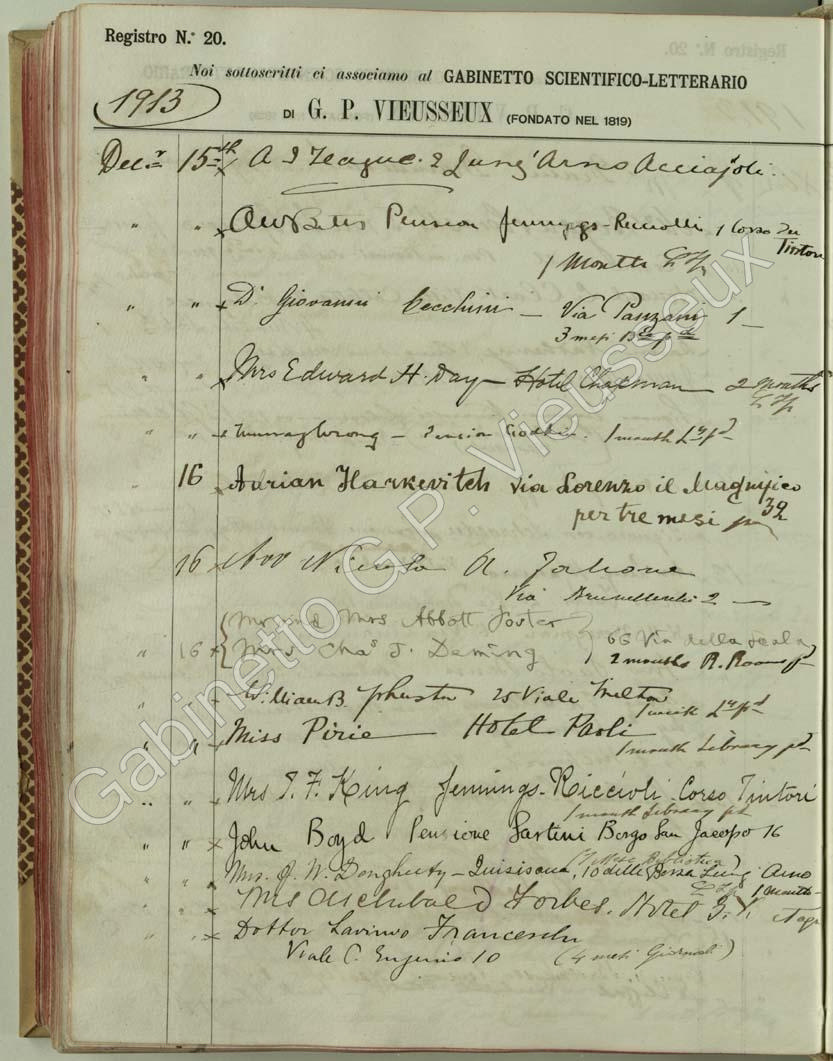 Registro N.° 20.
Noi sottoscritti ci associamo al GABINETTO SCIENTIFICO-LETTERARIO
1913
DI G. P. VIEUSSEUX (FONDATO NEL 1819)
Decr 15th A I League. 2 Lung' Arno Acciajoli.
" " Pension Jennings- 1 Corso dei
Tintori
1 Month
" " Dr Giovanni Cecchini — Via Panzani 1 —
3 mesi
" " Mrs Edward H. Day — Hotel Chapman — 2 Months
" " — Pension Godkin. 1 month Lry pd
" 16 Adrian Harkevitch via Lorenzo il Magnifico
per tre mesi 32
16 Avv A.
Via Brunelleschi 2 —
Mr and Mrs Abbott Foster
" 16 Mrs Chas J. Deming 66 Via della Scala
2 months R. Rooms
" " William B. 25 Viale Milton
1 week Lry pd
" " Miss Pirie Hotel Paoli
1 month Library pd
" " Mrs I. F. King Jennings-Riccioli Corso Tintori
1 month Library pd
" " John Boyd Pensione Sartini Borgo San Jacopo 16
" " Mrs. J. W. Dougherty — Quisisana, 10 delle Borsa Lung Arno
1 Month
" " Mrs Archibald Forbes. Hotel
" " Dottor Lavinio Franceschi
Viale C. Eugenio 10 (4 mesi Giornali)
Gabinetto G. P. Vieusseux